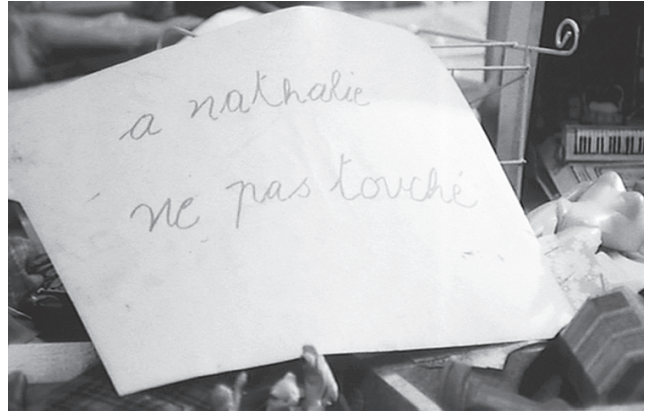 a nathalie
ne pas touché